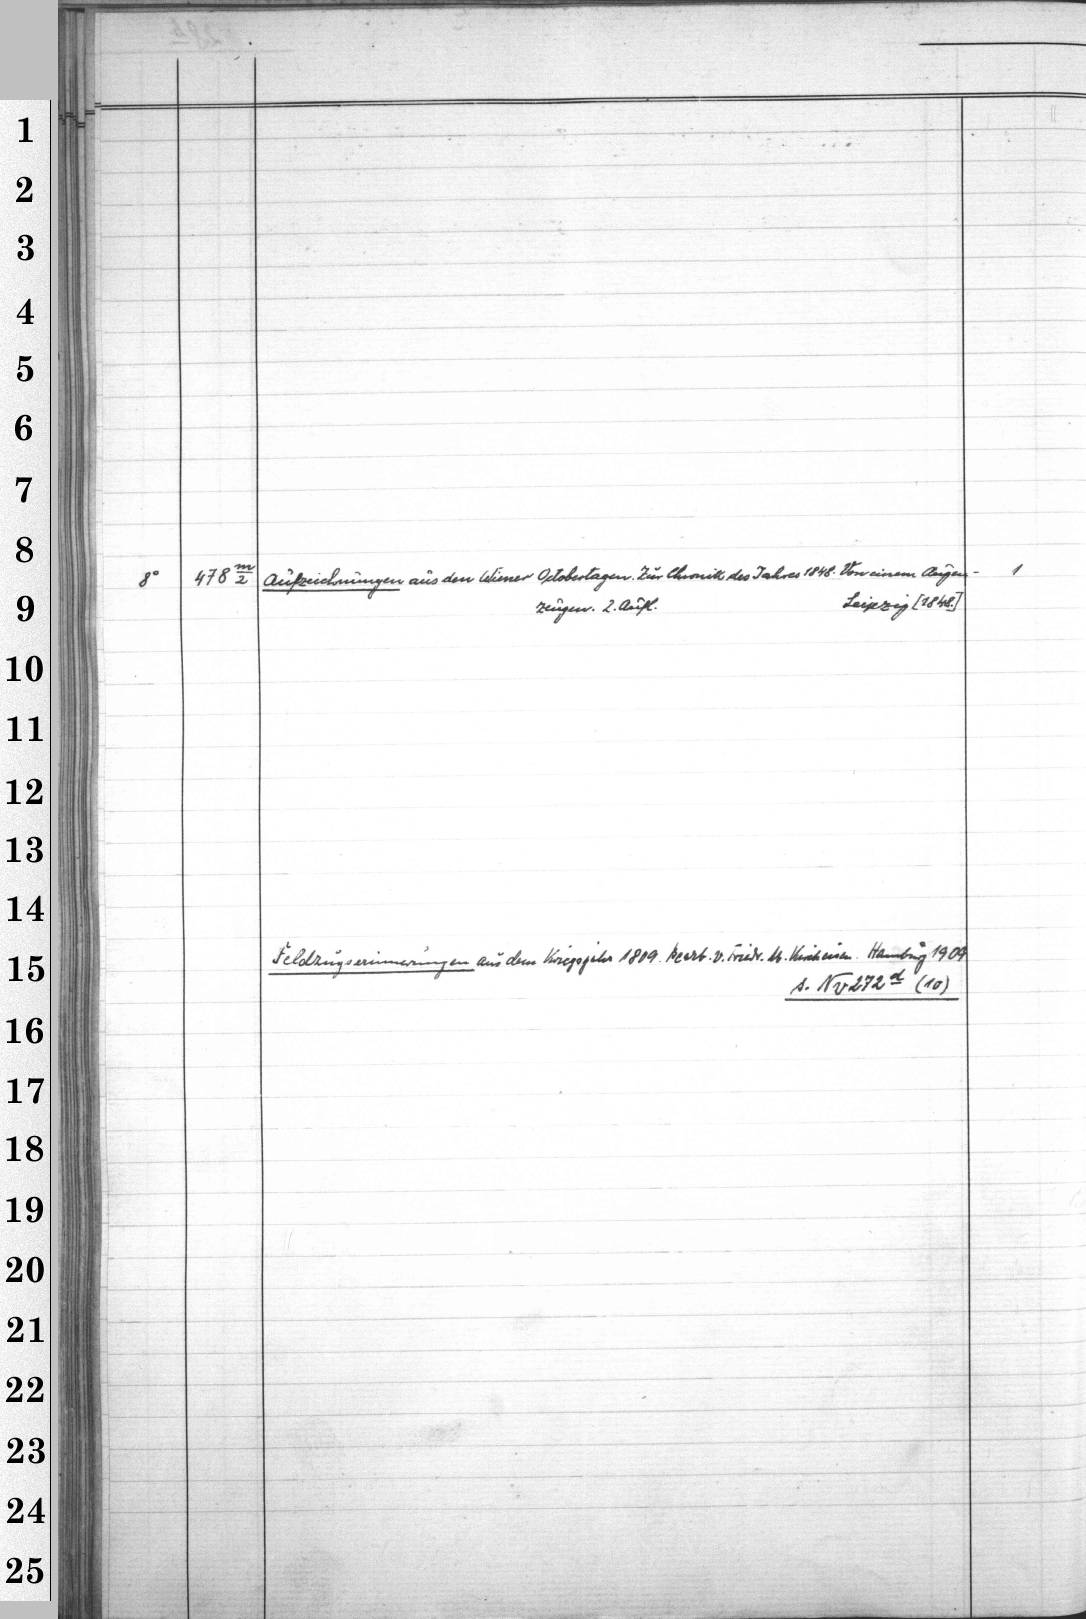 1
2
3
4
5
6
7
8
8° 478 m/2 Aufzeichnungen aus den Wiener Octobertagen. Zur Chronik des Jahres 1848. Von einem Augen- 1
9
zeugen. 2. Aufl. Leipzig [1848.]
10
11
12
13
14
15
Feldzugserinnerungen aus dem Kriegsjahr 1809. Bearb. v. Friedr. M. Kircheisen. Hamburg 1909
s. Nv 272 d (10)
16
17
18
19
20
21
22
23
24
25